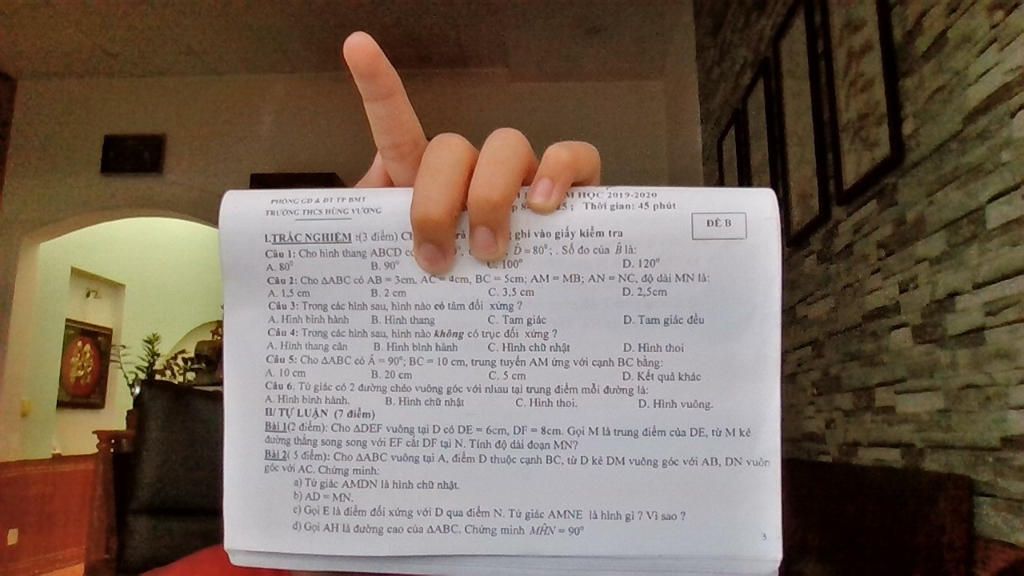 PHÒNG GD & ĐT TP BMT
HỌC 2019-2020
TRƯỜNG THCS HÙNG VƯƠNG
Thời gian: 45 phút
ĐỀ B
I.TRẮC NGHIỆM :(3 điểm) ghi vào giấy kiểm tra
Câu 1: Cho hình thang ABCD D̂ = 80⁰; . Số đo của B̂ là:
A. 80⁰ B. 90⁰ C. 100⁰ D. 120⁰
Câu 2: Cho ΔABC có AB = 3cm, AC = 4cm, BC = 5cm; AM = MB; AN = NC, độ dài MN là:
A. 1,5 cm B. 2 cm C. 3,5 cm D. 2,5cm
Câu 3: Trong các hình sau, hình nào có tâm đối xứng ?
A. Hình bình hành B. Hình thang C. Tam giác D. Tam giác đều
Câu 4: Trong các hình sau, hình nào không có trục đối xứng ?
A. Hình thang cân B. Hình bình hành C. Hình chữ nhật D. Hình thoi
Câu 5: Cho ΔABC có Â = 90⁰; BC = 10 cm, trung tuyến AM ứng với cạnh BC bằng:
A. 10 cm B. 20 cm C. 5 cm D. Kết quả khác
Câu 6. Tứ giác có 2 đường chéo vuông góc với nhau tại trung điểm mỗi đường là:
A. Hình bình hành. B. Hình chữ nhật C. Hình thoi. D. Hình vuông.
II/ TỰ LUẬN (7 điểm)
Bài 1(2 điểm): Cho ΔDEF vuông tại D có DE = 6cm, DF = 8cm. Gọi M là trung điểm của DE, từ M kẻ
đường thẳng song song với EF cắt DF tại N. Tính độ dài đoạn MN?
Bài 2( 5 điểm): Cho ΔABC vuông tại A, điểm D thuộc cạnh BC, từ D kẻ DM vuông góc với AB, DN vuôn
góc với AC. Chứng minh:
a) Tứ giác AMDN là hình chữ nhật.
b) AD = MN.
c) Gọi E là điểm đối xứng với D qua điểm N. Tứ giác AMNE là hình gì ? Vì sao ?
d) Gọi AH là đường cao của ΔABC. Chứng minh MĤN = 90⁰
3